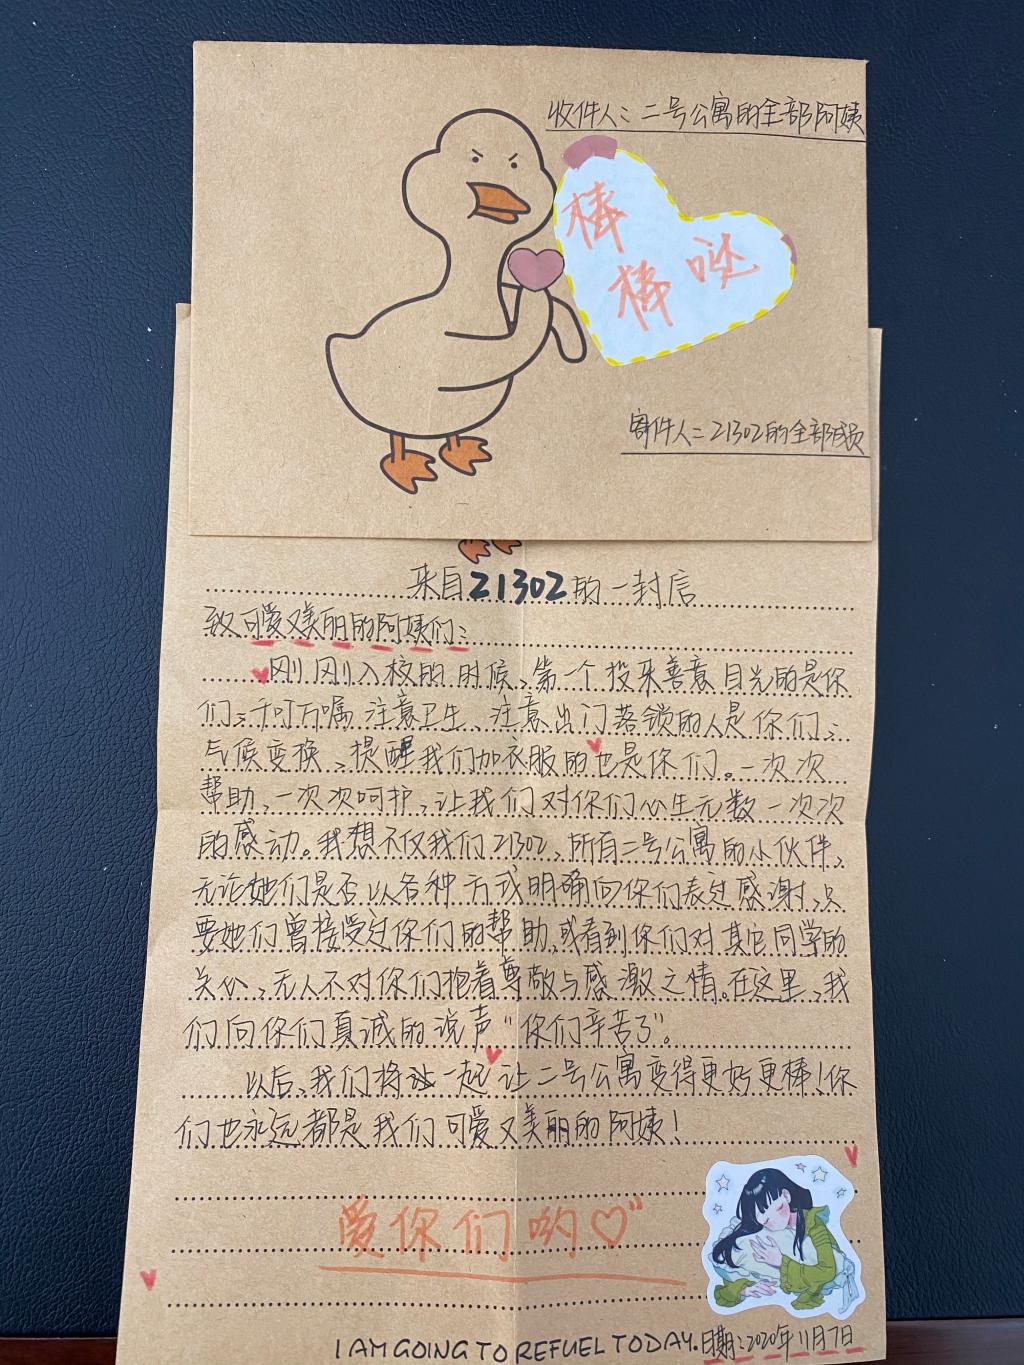 收件人：二号公寓的全部阿姨
棒
棒哒
寄件人：21302的全部成员
来自21302的一封信
致可爱又美丽的阿姨们：
刚刚入校的时候、第一个投来善意目光的是你
们；千叮万嘱注意卫生、注意出门落锁的人是你们；
气候变换、提醒我们加衣服的也是你们。一次次
帮助、一次次呵护，让我们对你们心生无数一次次
的感动。我想不仅我们21302，所有二号公寓的小伙伴，
无论她们是否以各种方式明确向你们表过感谢，只
要她们曾接受过你们的帮助，或看到你们对其它同学的
关心，无人不对你们抱着尊敬与感激之情。在这里，我
们向你们真诚的说声“你们辛苦了”。
以后，我们将一起让二号公寓变得更好更棒！你
们也永远都是我们可爱又美丽的阿姨！
爱你们哟♡
I AM GOING TO REFUEL TODAY. 日期：2020年11月7日